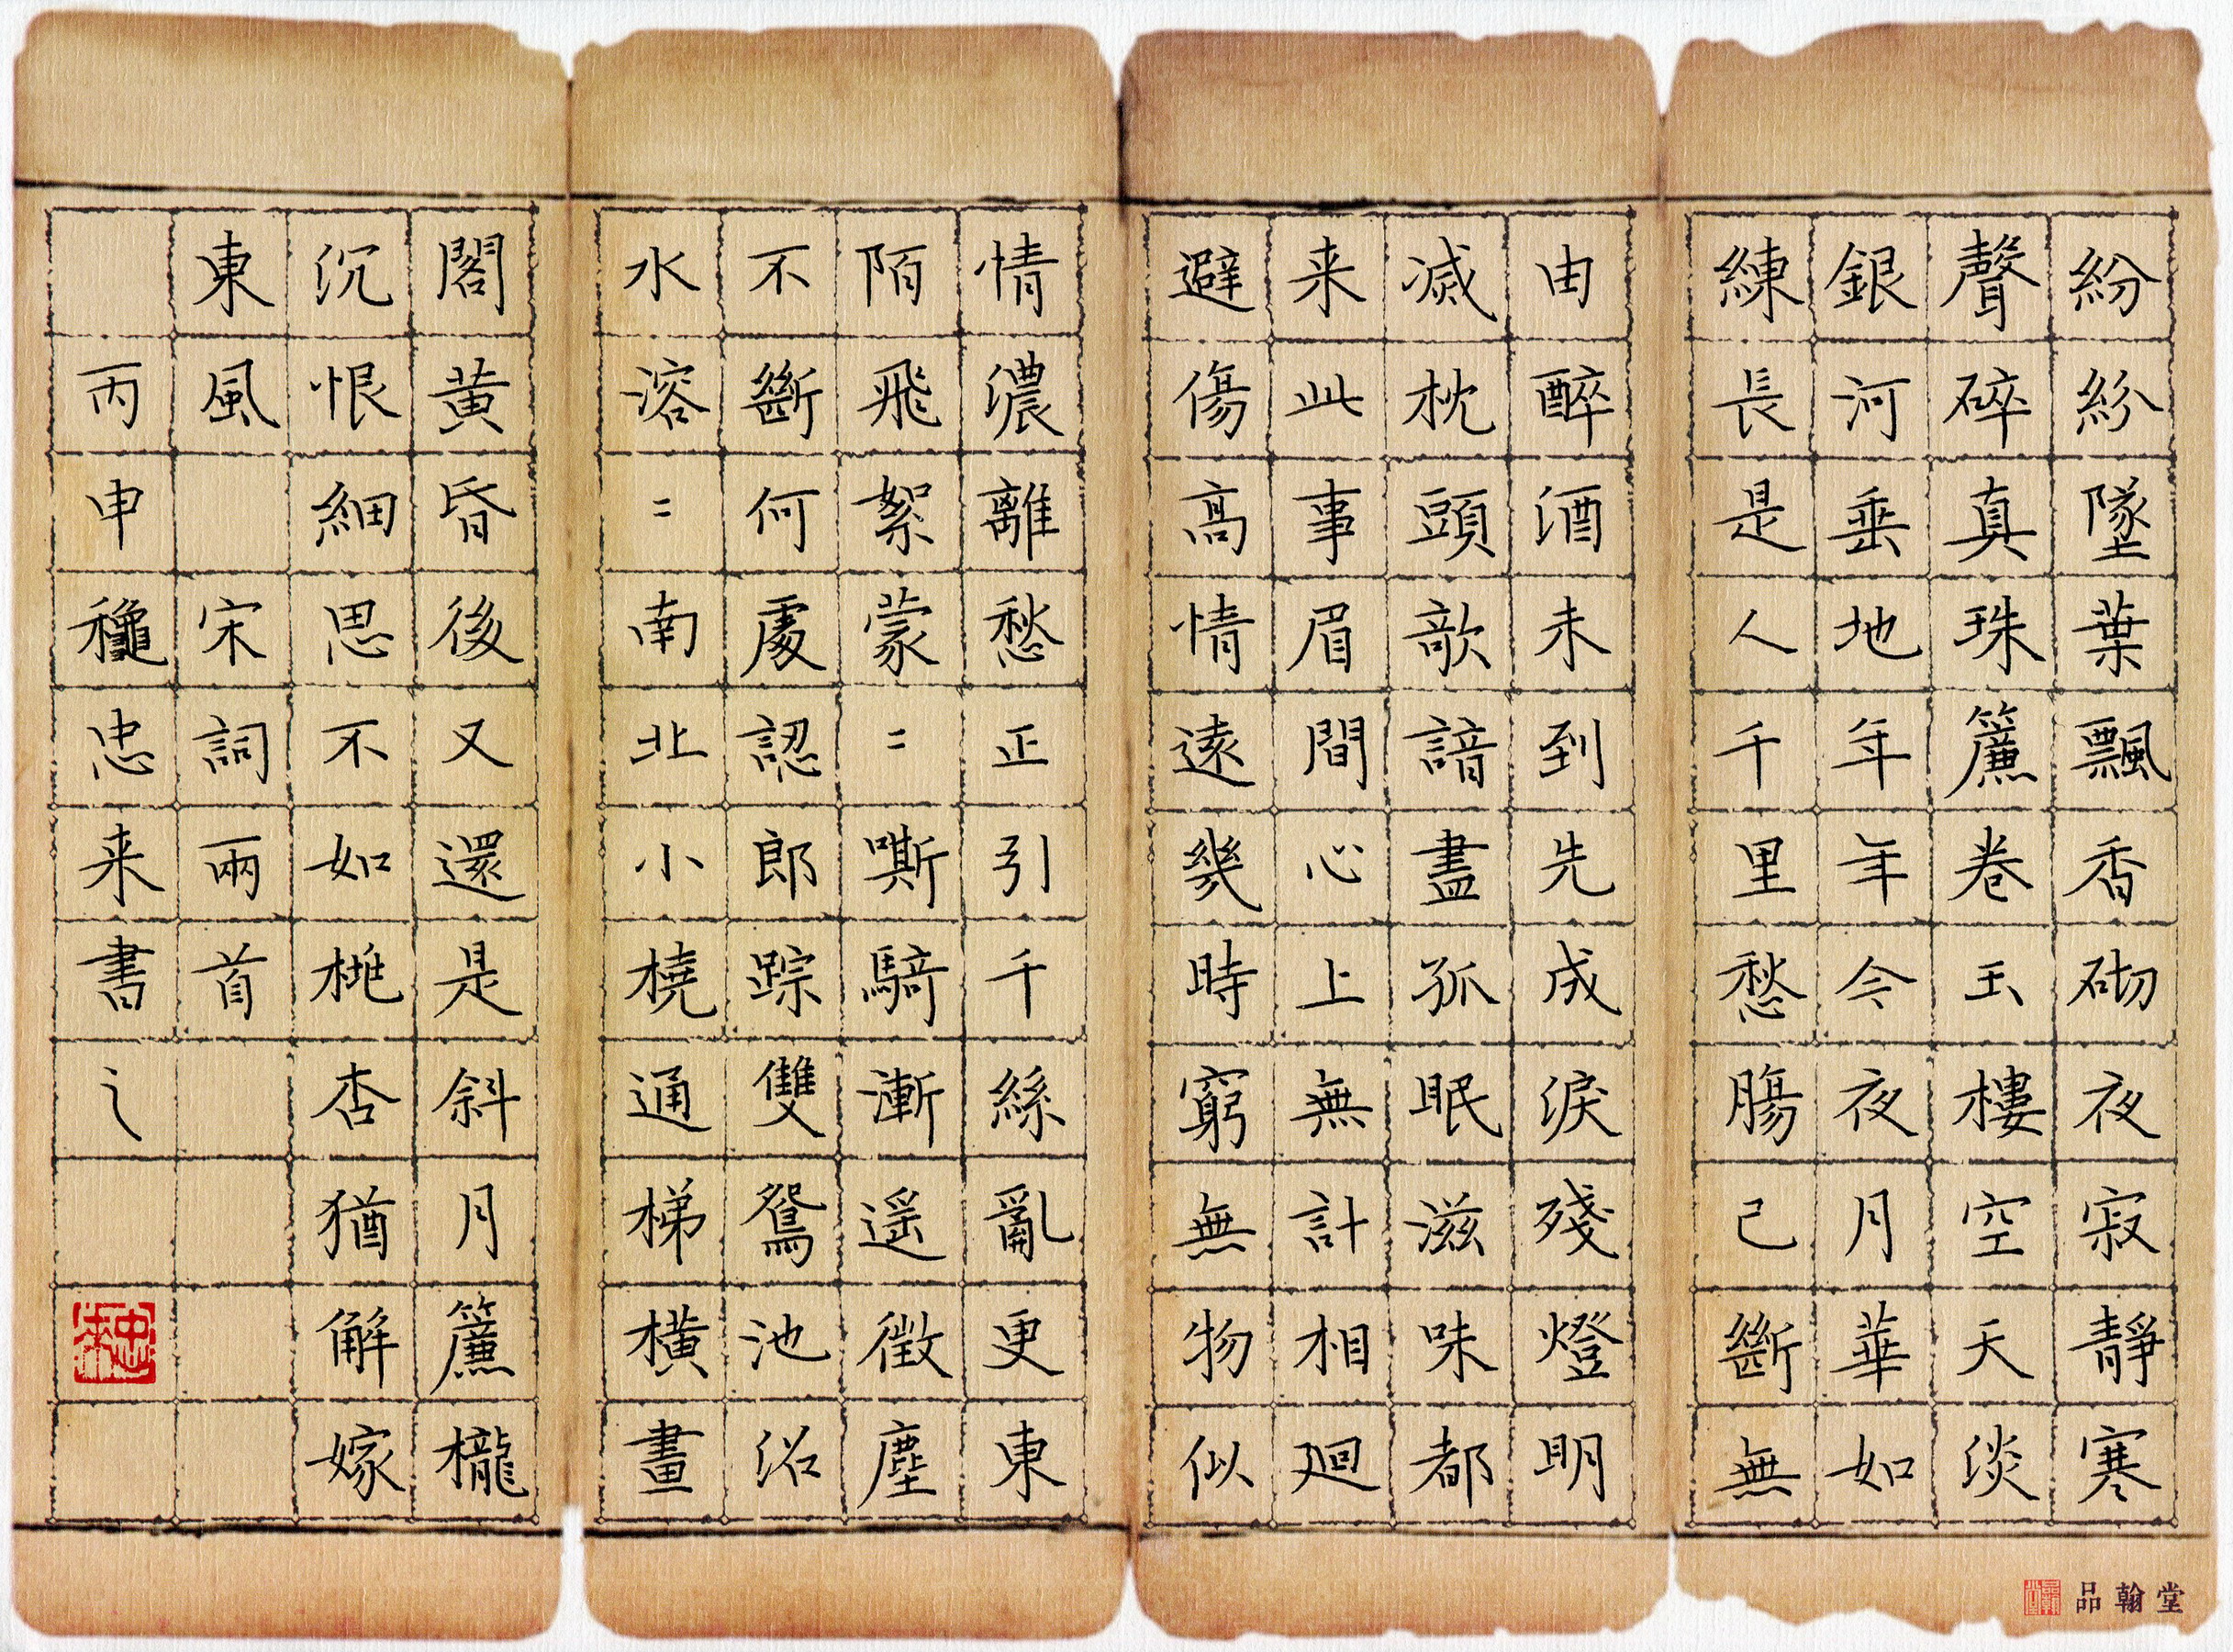 紛紛墜葉飄香砌夜寂靜寒
聲碎真珠簾卷玉樓空天淡
銀河垂地年年今夜月華如
練長是人千里愁腸已斷無
由醉酒未到先成淚殘燈明
滅枕頭欹諳盡孤眠滋味都
来此事眉間心上無計相迴
避傷高情遠幾時窮無物似
情濃離愁正引千絲亂更東
陌飛絮蒙〻嘶騎漸遥徵塵
不斷何處認郎踪雙鴛池沼
水溶〻南北小橈通梯橫畫
閣黄昏後又還是斜月簾櫳
沉恨細思不如桃杏猶解嫁
東風 宋詞兩首
丙申龝忠来書之
忠来
品翰堂